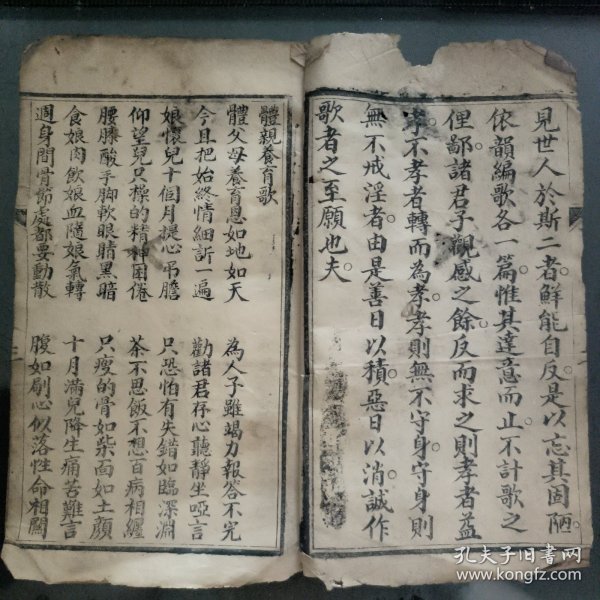 見世人於斯二者鮮能自反是以忘其固陋
依韻編歌各一篇惟其達意而止不計歌之
俚鄙諸君子觀感之餘反而求之則孝者益
孝不孝者轉而為孝孝則無不守身守身則
無不戒淫者由是善日以積惡日以消誠作
歌者之至願也夫
體親養育歌
體父母養育恩如地如天 為人子雖竭力報答不完
今且把始終情細訴一遍 勸諸君存心聽靜坐啞言
娘懷兒十個月提心吊膽 只恐怕有失錯如臨深淵
仰望兒只操的精神困倦 茶不思飯不想百病相纏
腰膝酸手脚軟眼睛黑暗 只瘦的骨如柴面如土顏
食娘肉飲娘血隨娘氣轉 十月滿兒降生痛苦難言
週身間骨節處都要動散 腹如刷心似落性命相關
孔夫子旧书网
www.kongfz.com